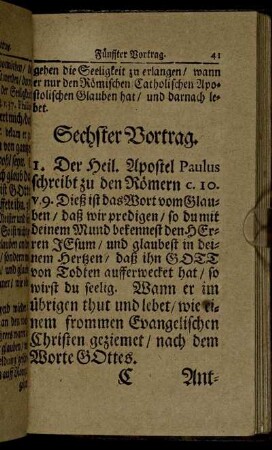 Fünffter Vortrag. 41
gehen die Seeligkeit zu erlangen / wann
er nur den Römischen Catholischen Apo-
stolischen Glauben hat / und darnach le-
bet.
Sechster Vortrag.
1. Der Heil. Apostel Paulus
schreibt zu den Römern c. 10.
v. 9. Dieß ist das Wort vom Glau-
ben / daß wir predigen / so du mit
deinem Mund bekennest den HEr-
ren JEsum / und glaubest in dei-
nem Hertzen / daß ihn GOTT
von Todten aufferwecket hat / so
wirst du seelig. Wann er im
übrigen thut und lebet / wie ei-
nem frommen Evangelischen
Christen geziemet / nach dem
Worte GOttes.
C Ant-